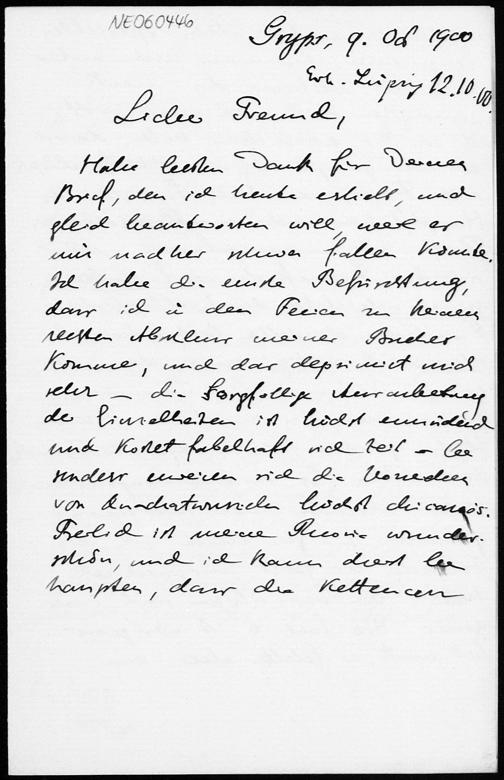 NE060446
Gryps, 9. Oct 1900
Erh. Leipzig 12.10.00.
Lieber Freund,
Habe besten Dank für Deinen
Brief, den ich heute erhielt, und
gleich beantworten will, weil er
mir nachher schwer fallen könnte.
Ich habe die ernste Befürchtung,
dass ich in den Ferien zu keinem
rechten Abschluss meines Buches
komme, und das deprimirt mich
sehr – die sorgfältige Ausarbeitung
der Einzelheiten ist höchst ermüdend
und kostet fabelhaft viel Zeit – be
sonders erweisen sich die
von Quadratwurzeln höchst chicanös.
Freilich ist meine Theorie wunder-
schön, und ich kann dreist be
haupten, dass die Ketten